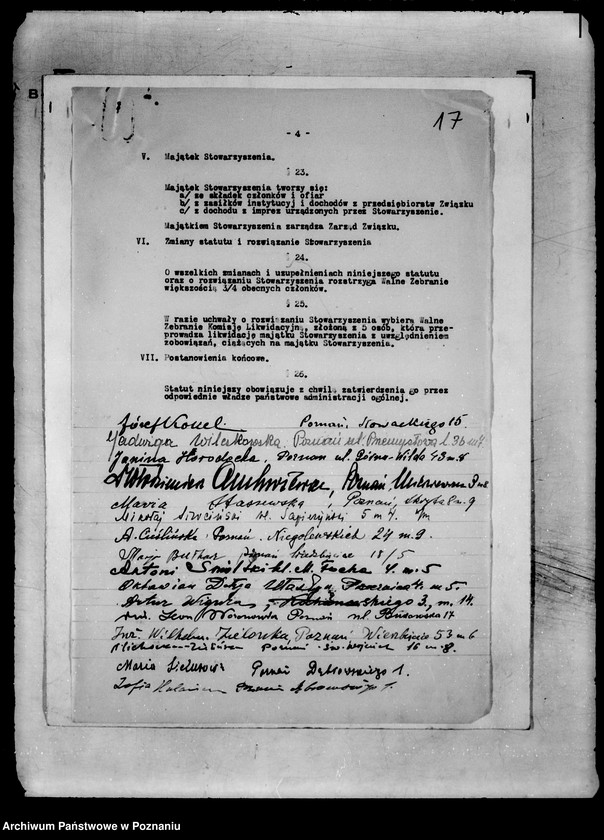 B
17
- 4 -
V. Majątek Stowarzyszenia.
§ 23.
Majątek Stowarzyszenia tworzy się:
a/ ze składek członków i ofiar
b/ z zasiłków instytucyj i dochodów z przedsiębiorstw Związku
c/ z dochodu z imprez urządzonych przez Stowarzyszenie.
Majątkiem Stowarzyszenia zarządza Zarząd Związku.
VI. Zmiany statutu i rozwiązanie Stowarzyszenia
§ 24.
O wszelkich zmianach i uzupełnieniach niniejszego statutu
oraz o rozwiązaniu Stowarzyszenia rozstrzyga Walne Zebranie
większością 3/4 obecnych członków.
§ 25.
W razie uchwały o rozwiązaniu Stowarzyszenia wybiera Walne
Zebranie Komisję Likwidacyjną, złożoną z 5 osób, która prze-
prowadza likwidację majątku Stowarzyszenia z uwzględnieniem
zobowiązań, ciążących na majątku Stowarzyszenia.
VII. Postanowienia końcowe.
§ 26.
Statut niniejszy obowiązuje z chwilą zatwierdzenia go przez
odpowiednie władze państwowe administracji ogólnej.
Józef Poznań,
Jadwiga Poznań ul. Przemysłowa
Janina Poznań ul. Górna-Wilda 43 m 8
Włodzimierz Poznań,
Maria Staszewska, Poznań,
Mikołaj 5 m 7.
A. Cieśliński Poznań Niegolewskich 24 m 9.
Poznań 18/5
Antoni ul. M. Focha 4 m. 5
Oktawian 4 m. 5.
Artur 3, m. 14.
Poznań ul. 17
Inż. Wilhelm Poznań 53 m 6
Poznań 16 m. 8.
Maria Poznań Dąbrowskiego 1.
Zofia Dąbrowskiego
Archiwum Państwowe w Poznaniu